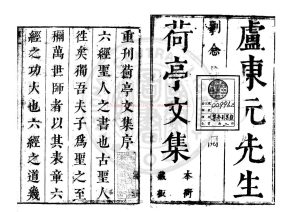 盧東元先生
荷亭文集
本衙
藏板
重刊荷亭文集序
六經聖人之書也古聖人
徃矣獨吾夫子爲聖之至
獮萬世師者以其表章六
經之功大也六經之道幾